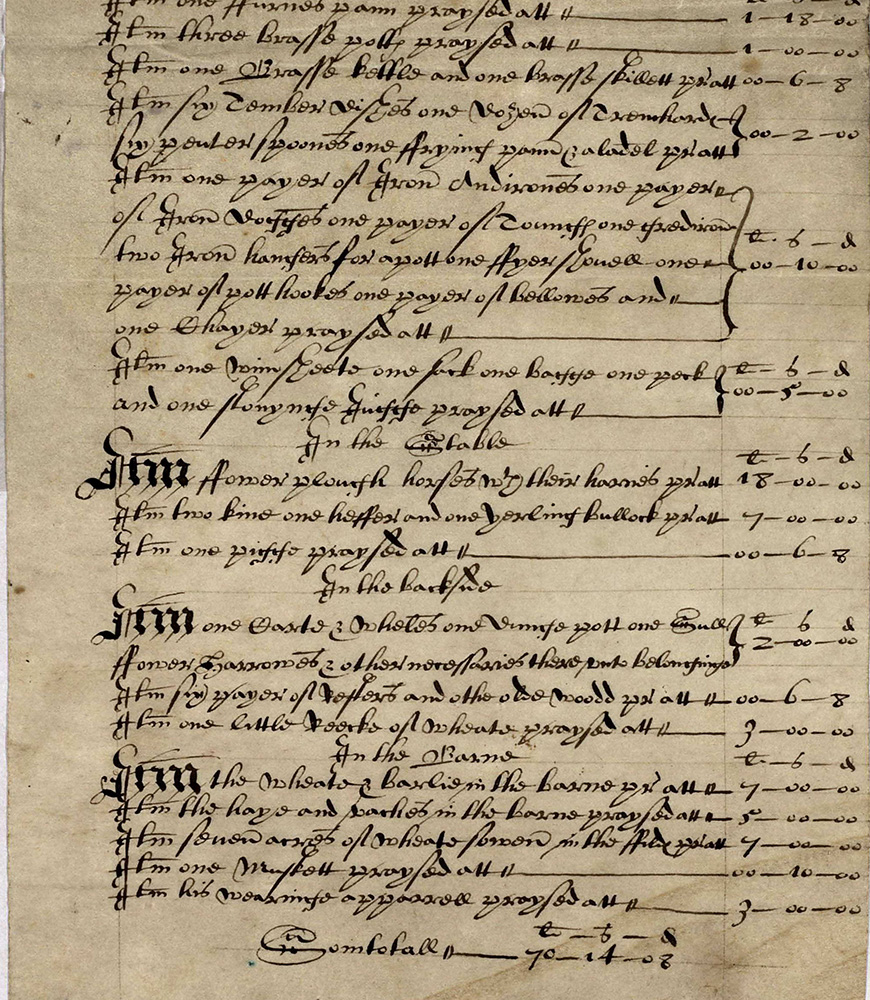 Itm one ffurnes pann praysed att 1–18–00
Itm three brasse potts praysed att 1–00–00
Itm one Brasse kettle and one brasse skillett pr att 00–6–8
Itm six Tember dishes one dozen of Trenchards
six pewter spoones one ffryinge pann & a ladel pr att 00–2–00
Itm one payer of Iron Andirones one payer
of Iron dogges one payer of Tounges one grediron £–s–d
two Iron hangers for a pott one ffyer shovell one 00–10–00
payer of pott hookes one payer of bellowes and
one Chayer praysed att
Itm one winsheete one sack one bagge one peck £–s–d
and one praysed att 00–5–00
In the Stable
£–s–d
Itm ffower plough horses wth their harnis pr att 18–00–00
Itm two kine one heffer and one yerling bullock pr att 7–00–00
Itm one pigge praysed att 00–6–8
In the backside
Itm one Carte & wheles one dunge pott one £ s d
ffower Harrowes & other necessaries there unto belonginge 2–00–00
Itm six payer of and othe olde woodd pr att 00–6–8
Itm one little Reecke of wheate praysed att 3–00–00
In the Barne £–s–d
Itm the wheate & barlie in the barne pr att 7–00–00
Itm the haye and vaches in the barne praysed att 5–00–00
Itm seven acres of wheate sowen in the ffild pr att 7–00–00
Itm one Muskett praysed att 00–10–00
Itm his wearinge apparrell praysed att 3–00–00
£–s–d
Somtotall 70–14–08